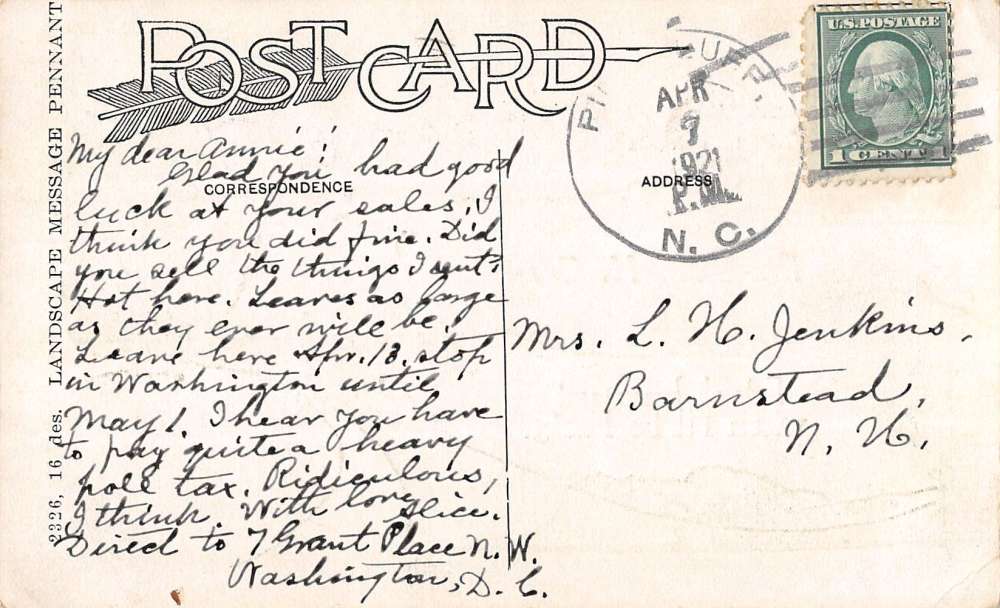 POST CARD
2326, 16 des. LANDSCAPE MESSAGE PENNANT
CORRESPONDENCE
My dear Annie!
Glad you had good
luck at your sales. I
think you did fine. Did
you sell the things I sent?
Hot here. Leaves as large
as they ever will be.
Leave here Apr. 13. stop
in Washington until
May 1. I hear you have
to pay quite a heavy
poll tax. Ridiculous,
I think. With love
Alice.
Direct to 7 Grant Place N.W.
Washington, D.C.
ADDRESS
APR
7
1921
P.M.
N. C.
U.S. POSTAGE
1 CENT 1
Mrs. L. H. Jenkins,
Barnstead,
N. H.